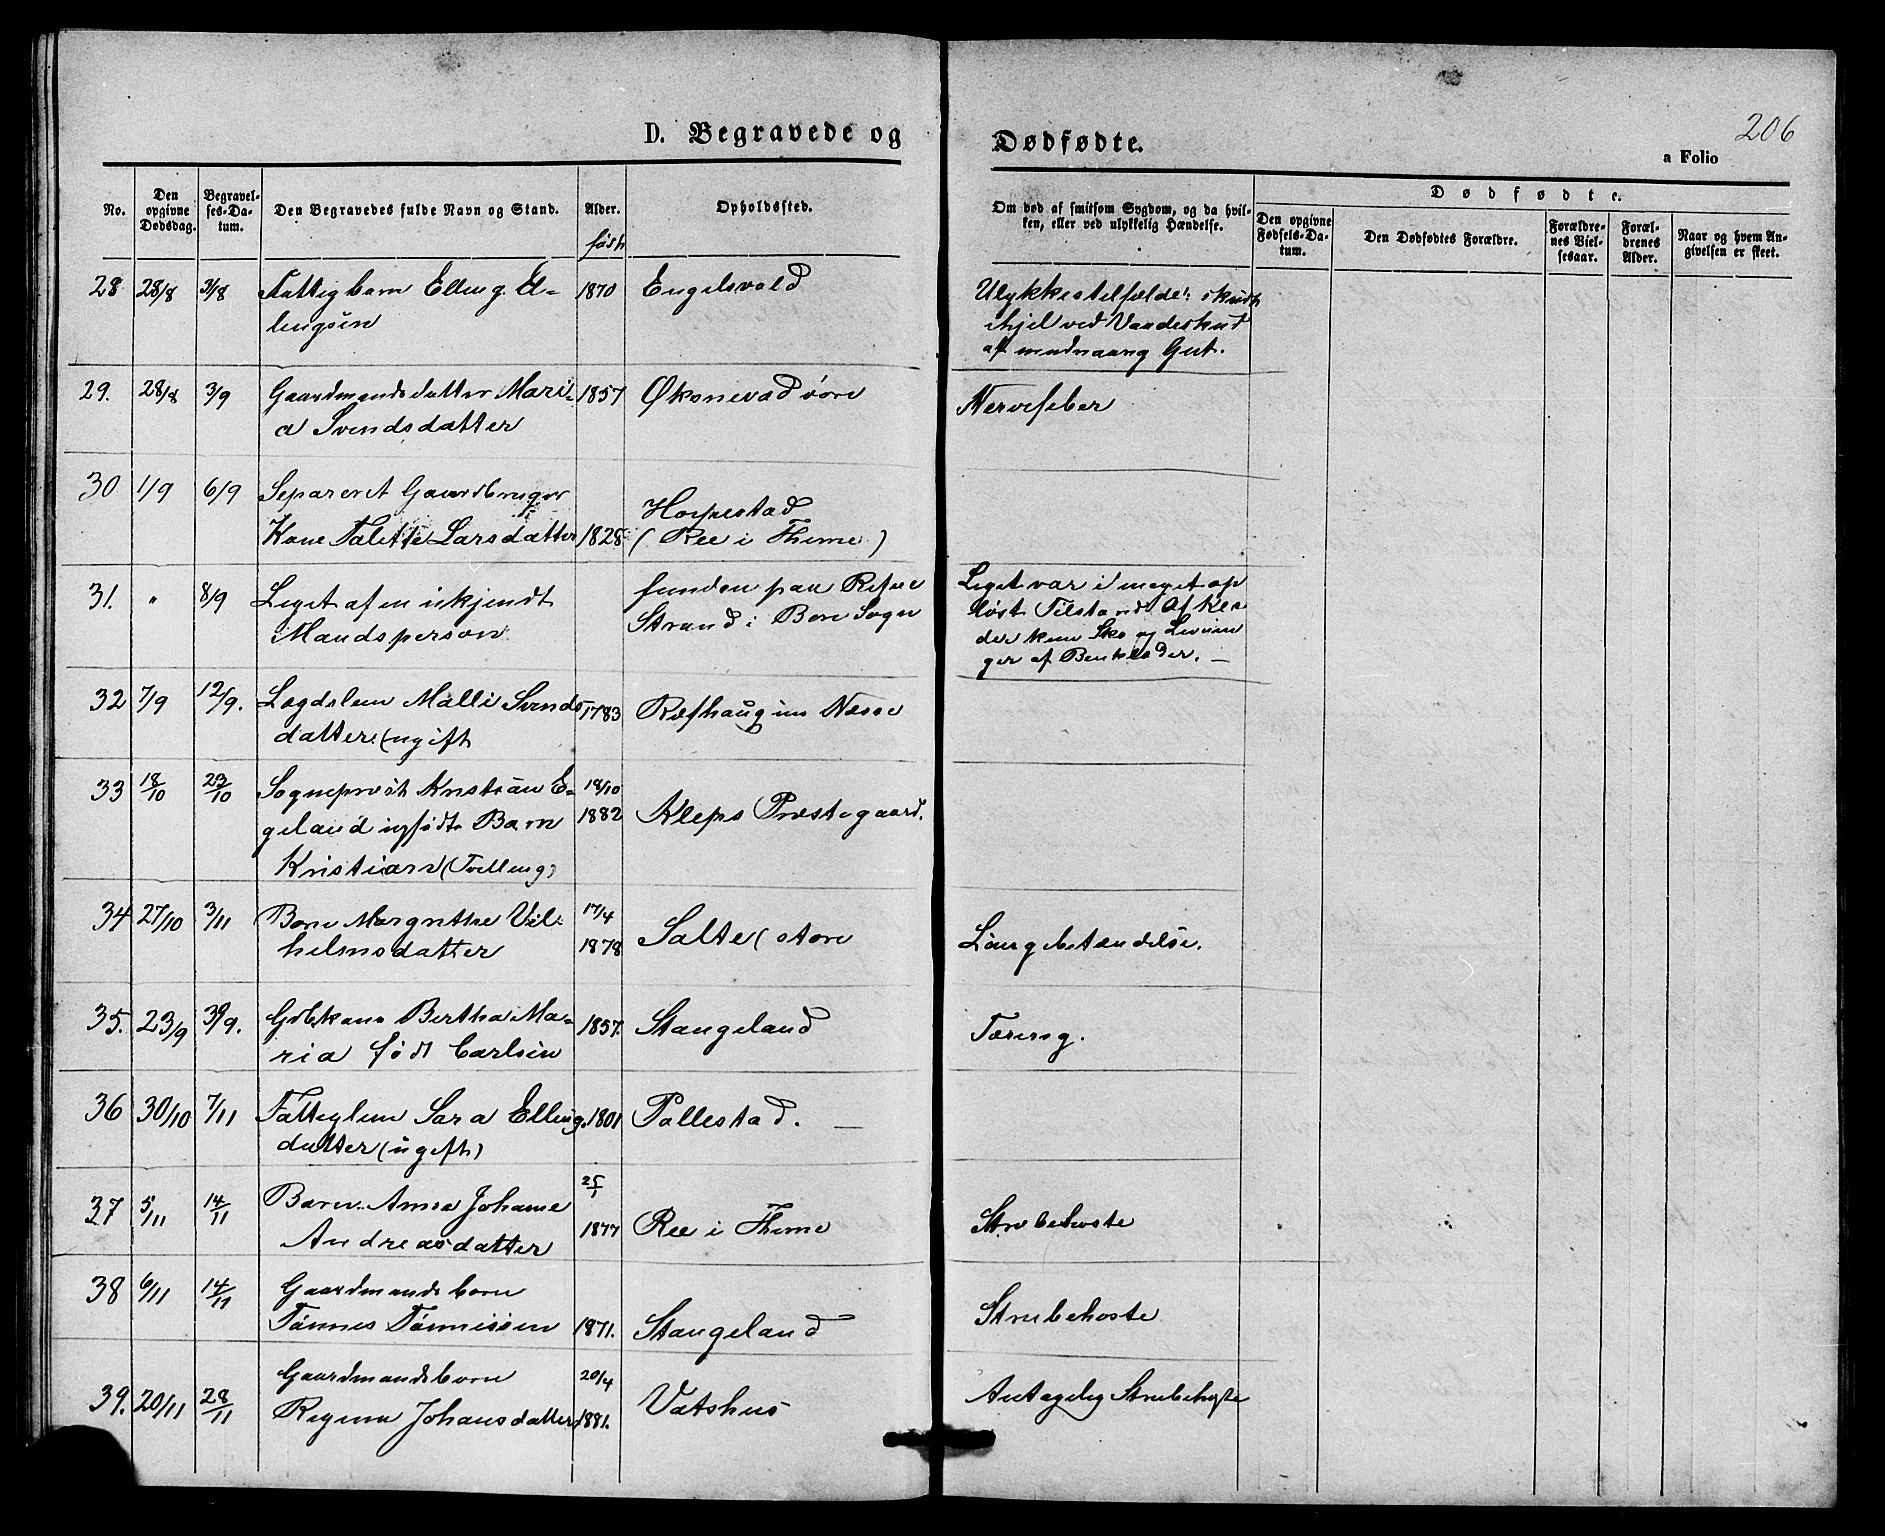 D. Begravede og Dødfødte.
206
a Folio
No.
Den opgivne Dødsdag.
Begravelses-Datum.
Den Begravedes fulde Navn og Stand.
Alder.
født
Opholdssted.
Om død af smitsom Sygdom, og da hvilken, eller ved ulykkelig Hændelse.
Dødfødte.
Den opgivne Fødsels-Datum.
Den Dødfødtes Forældre.
Forældrenes Vielsesaar.
Forældrenes Alder.
Naar og hvem Angivelsen er skeet.
28 28/8 3/8 Fattigbarn Elling El- 1870 Engelsvold Ulykkestilfælde: skudt
lingsen ihjel ved Vaadeskud
af
Gut.
29. 28/8 3/9 Gaardmandsdatter Mari- 1857 Øksnevad øvre Nervefeber
a Svendsdatter
30 1/9 6/9 Separeret Gaardbruger
Kone Talette Larsdatter 1828 Horpestad
(Ree i Thime)
31. " 8/9 Liget af en ukjendt funden paa Refne Liget var i meget op
Mandsperson Strand i Bore Sogn løst Tilstand. Af Klæ
der kun Sko og Levnin
ger af Benklæder. —
32 7/9 12/9. Lægdslem Malli Svends- 1783 Refhaug
Næsse
datter (ugift
33 18/10 23/10 Sognepræst Kristian E- 18/10
geland nyfødte Barn 1882 Kleps Præstegaard.
Kristian (Tvilling)
34 27/10 3/11 Barn Margrethe Vil- 17/4
helmsdatter 1878 Salte (store Lungebetændelse.
35. 23/9 30/9. Gbkone Bertha Ma- 1857. Stangeland Tæring.
ria født Carlsen
36 30/10 7/11 Fattiglem Sara Elling 1801 Pollestad. —
datter (ugift)
37 5/11 14/11 Barn Anna Johanne 25/1
Andreasdatter 1877 Ree i Thime Strubehoste
38 6/11 14/11 Gaardmandsbarn
Tønnes Tønnessen 1871. Stangeland Strubehoste
39. 20/11 28/11 Gaardmandsbarn 20/4
Regine Johansdatter 1881. Vatshus Antagelig Strubehoste